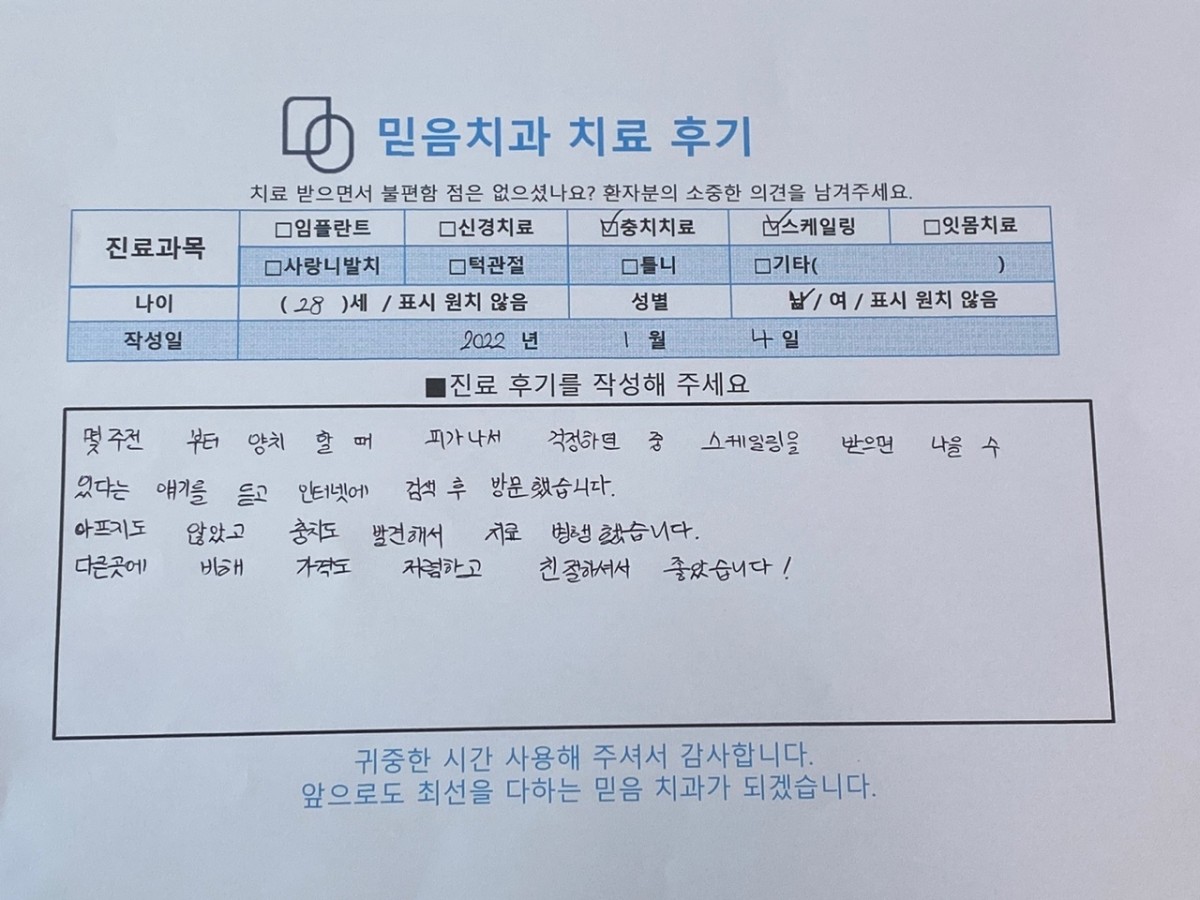 믿음치과 치료 후기
치료 받으면서 불편함 점은 없으셨나요? 환자분의 소중한 의견을 남겨주세요.
진료과목 □임플란트 □신경치료 ☑충치치료 ☑스케일링 □잇몸치료
□사랑니발치 □턱관절 □틀니 □기타( )
나이 ( 28 )세 / 표시 원치 않음 성별 남 / 여 / 표시 원치 않음
작성일 2022 년 1 월 4 일
■진료 후기를 작성해 주세요
몇 주전 부터 양치 할 때 피가 나서 걱정하면 중 스케일링을 받으면 나을 수
있다는 얘기를 듣고 인터넷에 검색 후 방문했습니다.
아프지도 않았고 충치도 발견해서 치료 병행 했습니다.
다른곳에 비해 가격도 저렴하고 친절하셔서 좋았습니다!
귀중한 시간 사용해 주셔서 감사합니다.
앞으로도 최선을 다하는 믿음 치과가 되겠습니다.